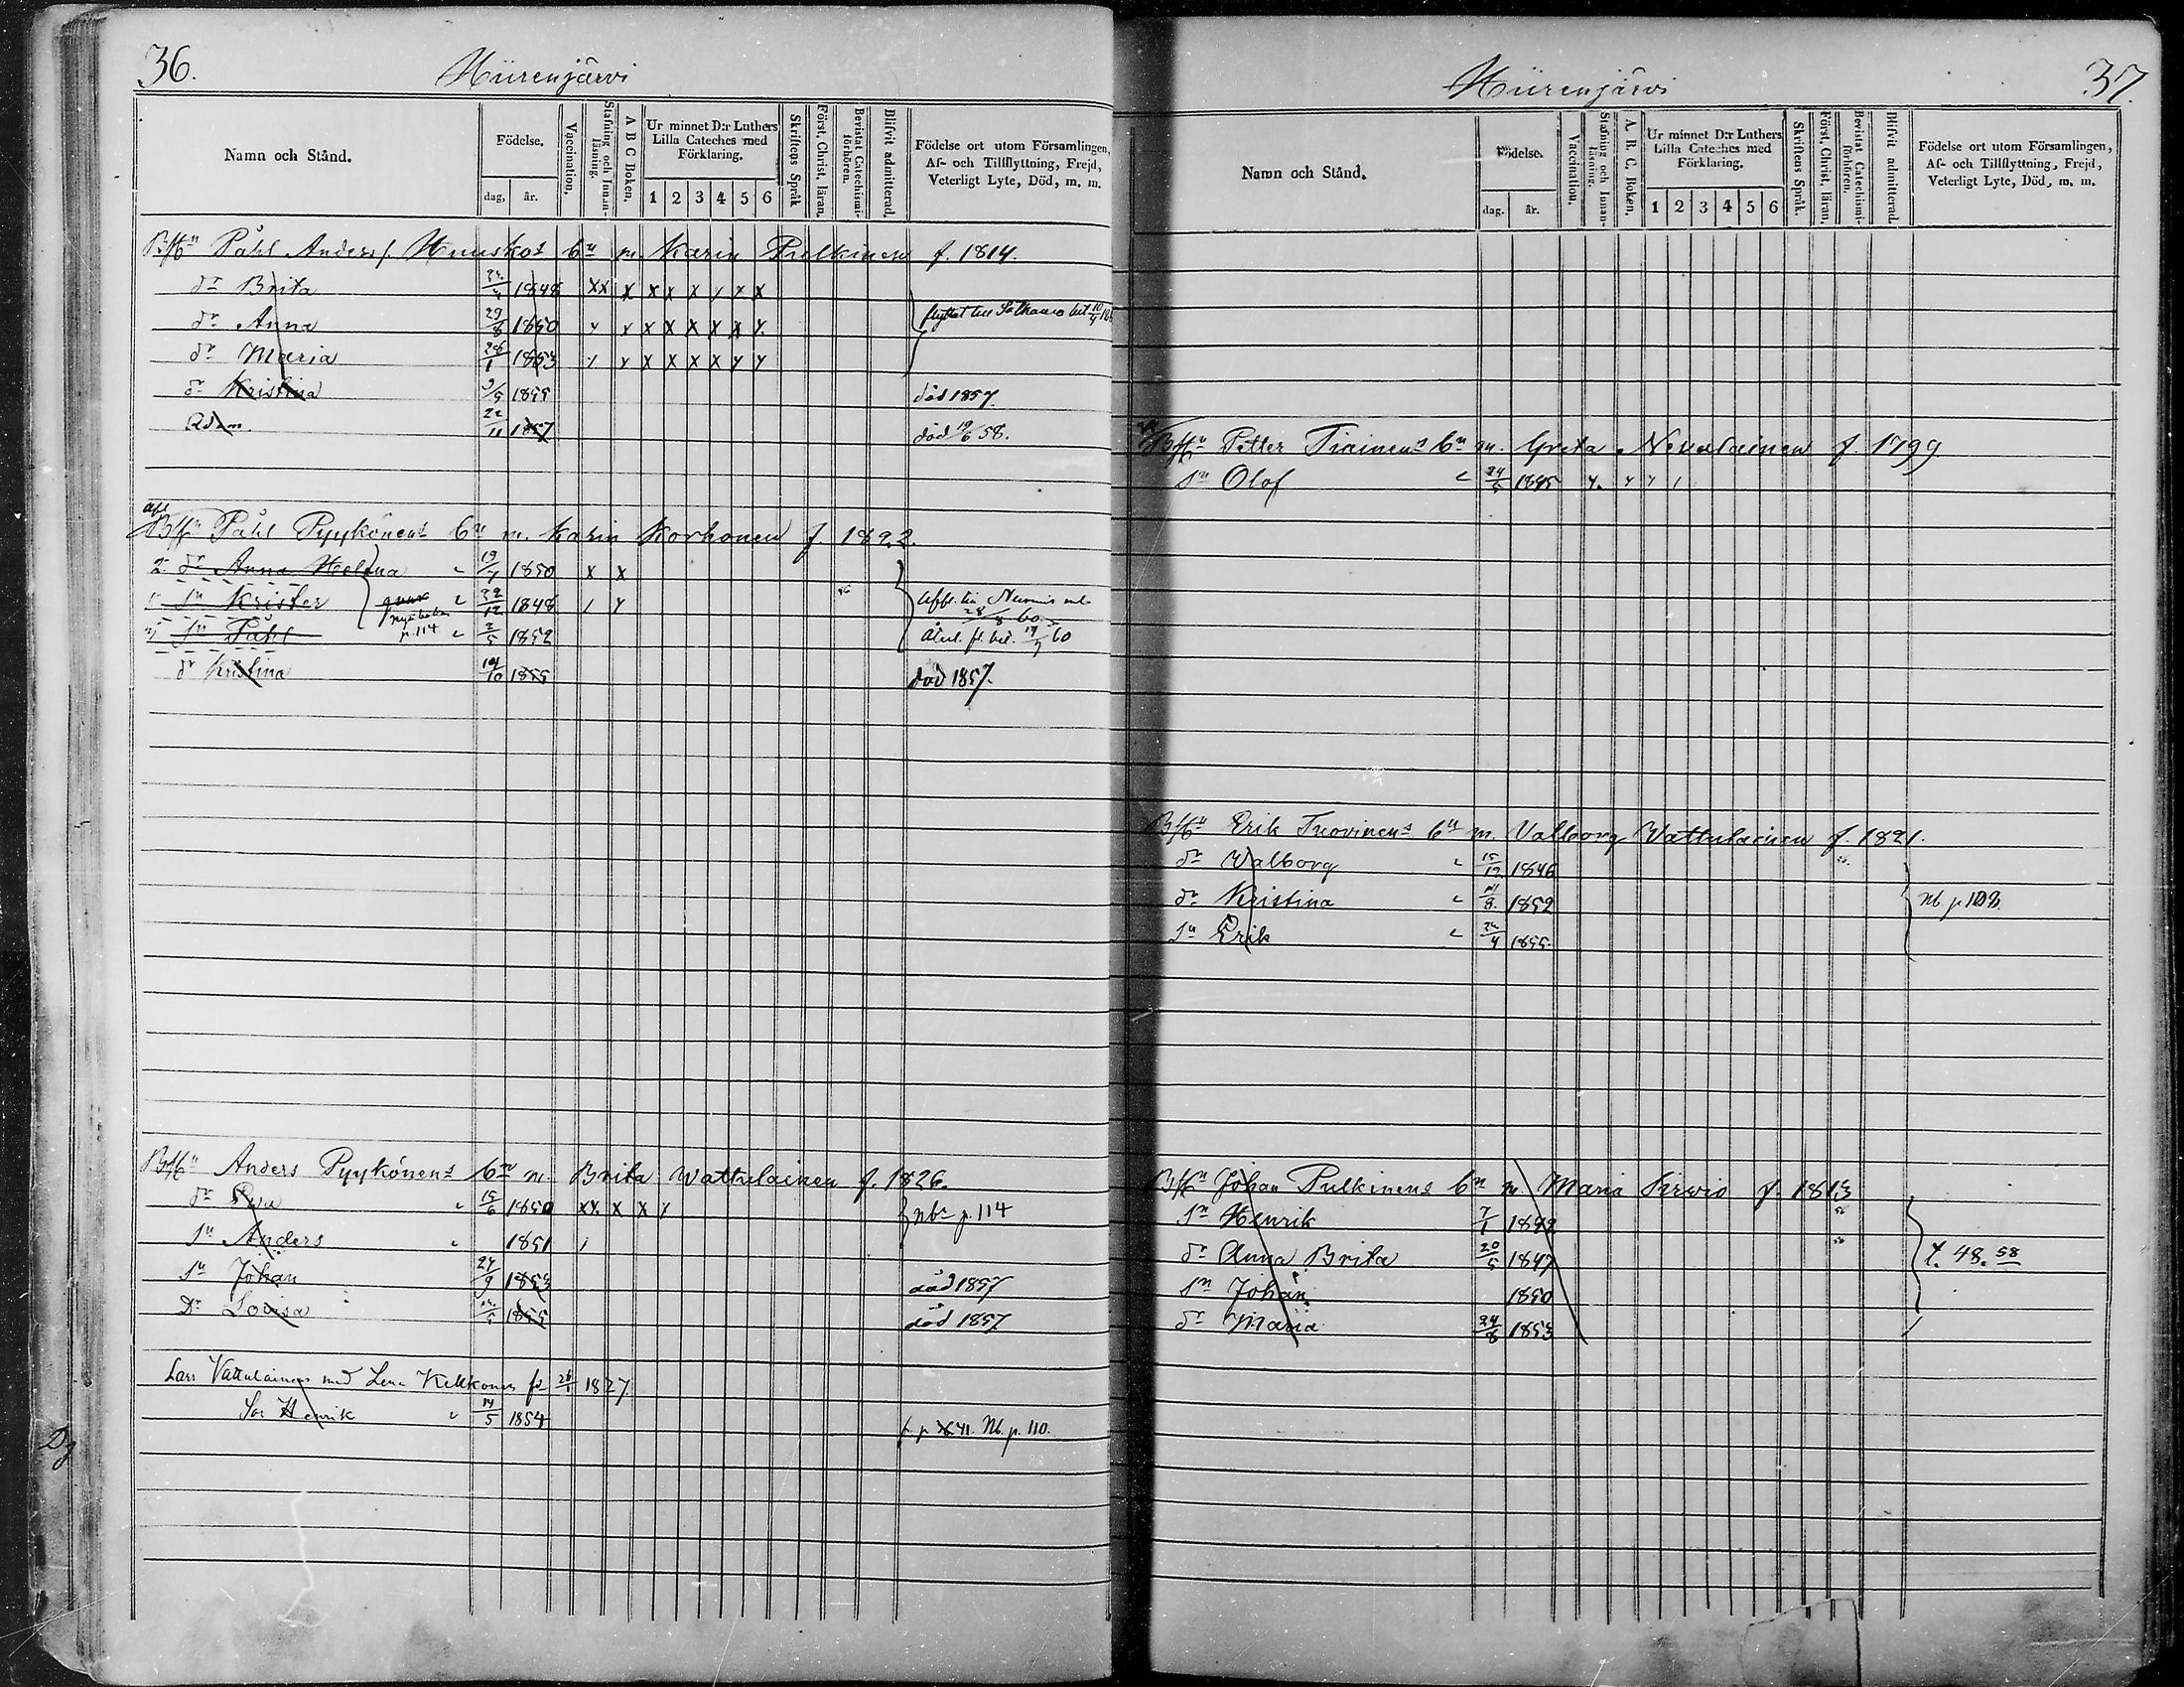 36.
Hiirenjärvi
Namn och Stånd.
Födelse.
dag. år.
Vaccination.
Stafning och Innanläsning.
A B C Boken.
Ur minnet D:r Luthers Lilla Cateches med Förklaring.
1 2 3 4 5 6
Skriftens Språk
Först. Christ. läran.
Bevistat Catechismiförhören.
Blifvit admitterad.
Födelse ort utom Församlingen, Af- och Tillflyttning, Frejd, Veterligt Lyte, Död, m. m.
Påhl Anders. Huuskos bn m. Karin Pulkinen f. 1814.
dr Brita 1848 xx x x x x y x x
dr Anna 29/8 1850 y y x x x x x y. flyttat till
dr Maria 28/1 1853 y y x x x x y y
dr Kristina 9/5 1855 död 1857.
Adam. 22/11 1857 död 19/6 58.
Påhl Pyykönens bn m. Karin Korhonen f. 1822.
2. dr Anna Helena 1850 x x
1 sn Krister 22/12 1848 / y
sn Påhl p. 114 2/5 1852 60
dr Kristina 19/10 1855 död 1857.
Anders Pyykönens bn m. Brita Wattulainen f. 1826.
dr Eva 15/6 1850 xy. x x y nbr p. 114
sn Anders 1851
sn Johan 27/9 1853 död 1857
Dr Lovisa 1855 död 1857
Lars Vattulainens med Lena Kettkonen fd 26/1 1827.
Son Henrik 14/5 1854 41. Nb. p. 110.
37.
Hiirenjärvi
Namn och Stånd.
Födelse.
dag. år.
Vaccination.
Stafning och Innanläsning.
A. B. C. Boken.
Ur minnet D:r Luthers Lilla Cateches med Förklaring.
1 2 3 4 5 6
Skriftens Språk.
Först. Christ. läran.
Bevistat Catechismiförhören.
Blifvit admitterad.
Födelse ort utom Församlingen, Af- och Tillflyttning, Frejd, Veterligt Lyte, Död, m. m.
Petter Tiainens bn m. Greta Nevalainen f. 1799
sn Olof 24/5 1845 y. y y /
Erik Tuovinens bn m. Valborg Wattulainen f. 1821.
dr Walborg 15/12 1846
dr Kristina 1852 Nb. p 108.
sn Erik 1855.
Johan Pulkinens bn m. Maria Sirviö f. 1813
sn Henrik 7/1 1842
dr Anna Brita 20/5 1847 t. 48. 58
sn Johan 1850
dr Maria 24/6 1853